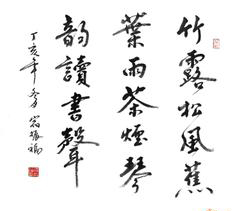 竹露松風蕉
葉雨茶煙琴
韵讀書聲
丁亥年冬月 翁振瑞